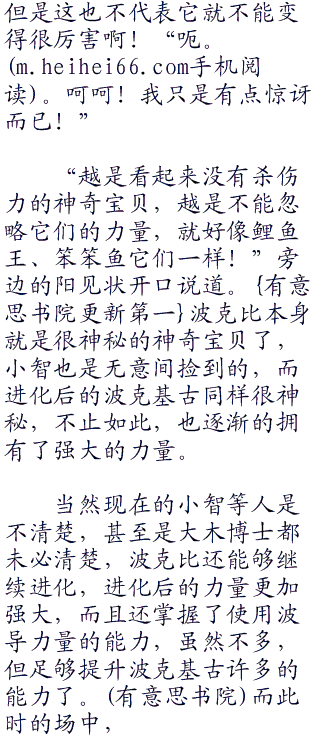 但是这也不代表它就不能变
得很厉害啊！“呃。
(m.heihei66.com手机阅
读)。呵呵！我只是有点惊讶
而已！”
“越是看起来没有杀伤
力的神奇宝贝，越是不能忽
略它们的力量，就好像鲤鱼
王、笨笨鱼它们一样！”旁
边的阳见状开口说道。{有意
思书院更新第一}波克比本身
就是很神秘的神奇宝贝了，
小智也是无意间捡到的，而
进化后的波克基古同样很神
秘，不止如此，也逐渐的拥
有了强大的力量。
当然现在的小智等人是
不清楚，甚至是大木博士都
未必清楚，波克比还能够继
续进化，进化后的力量更加
强大，而且还掌握了使用波
导力量的能力，虽然不多，
但足够提升波克基古许多的
能力了。(有意思书院)而此
时的场中，